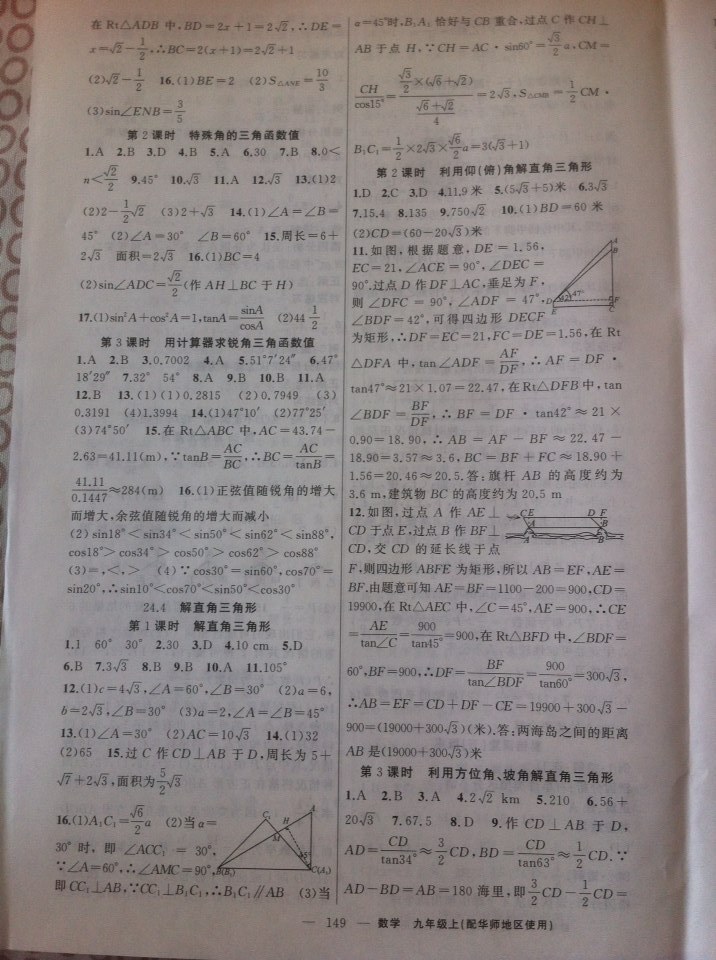 在 Rt△ADB 中,BD=2x+1=2√2,∴DE=
x=√2-1/2,∴BC=2(x+1)=2√2+1
(2)√2-1/2 16.(1)BE=2 (2)S△ANE=10/3
(3)sin∠ENB=3/5
第 2 课时 特殊角的三角函数值
1.A 2.B 3.D 4.B 5.A 6.30 7.B 8.0<
n<√2/2 9.45° 10.√3 11.A 12.√3 13.(1)2
(2)2-1/2√2 (3)2+√3 14.(1)∠A=∠B=
45° (2)∠A=30° ∠B=60° 15.周长=6+
2√3 面积=2√3 16.(1)BC=4
(2)sin∠ADC=√2/2(作 AH⊥BC 于 H)
17.(1)sin²A+cos²A=1,tanA=sinA/cosA (2)44 1/2
第 3 课时 用计算器求锐角三角函数值
1.A 2.B 3.0.7002 4.A 5.51°7′24″ 6.47°
18′29″ 7.32° 54° 8.A 9.B 10.B 11.A
12.B 13.(1)(1)0.2815 (2)0.7949 (3)
0.3191 (4)1.3994 14.(1)47°10′ (2)77°25′
(3)74°50′ 15.在 Rt△ABC 中,AC=43.74-
2.63=41.11(m),∵tanB=AC/BC,∴BC=AC/tanB=
41.11/0.1447≈284(m) 16.(1)正弦值随锐角的增大
而增大,余弦值随锐角的增大而减小
(2)sin18°<sin34°<sin50°<sin62°<sin88°,
cos18°>cos34°>cos50°>cos62°>cos88°
(3)=,<,> (4)∵cos30°=sin60°,cos70°=
sin20°,∴sin10°<cos70°<sin50°<cos30°
24.4 解直角三角形
第 1 课时 解直角三角形
1.1 60° 30° 2.30 3.D 4.10 cm 5.D
6.B 7.3√3 8.B 9.B 10.A 11.105°
12.(1)c=4√3,∠A=60°,∠B=30° (2)a=6,
b=2√3,∠B=30° (3)a=2,∠A=∠B=45°
13.(1)∠A=30° (2)AC=10√3 14.(1)32
(2)65 15.过 C 作 CD⊥AB 于 D,周长为 5+
√7+2√3,面积为5/2√3
16.(1)A₁C₁=√6/2a (2)当 α=
30° 时,即 ∠ACC₁ = 30°,
∵∠A=60°,∴∠AMC=90°,
即 CC₁⊥AB,∵CC₁⊥B₁C₁,∴B₁C₁∥AB (3)当
α=45°时,B₁A₁ 恰好与 CB 重合,过点 C 作 CH⊥
AB 于点 H,∵CH=AC·sin60°=√3/2a,CM=
CH/cos15°=(√3/2×(√6+√2))/((√6+√2)/4)=2√3,S△CMB₁=1/2CM·
B₁C₁=1/2×2√3×√6/2a=3(√3+1)
第 2 课时 利用仰(俯)角解直角三角形
1.D 2.C 3.D 4.11.9 米 5.(5√3+5)米 6.3√3
7.15.4 8.135 9.750√2 10.(1)BD=60 米
(2)CD=(60-20√3)米
11.如图,根据题意,DE=1.56,
EC=21,∠ACE=90°,∠DEC=
90°.过点 D 作 DF⊥AC,垂足为 F,
则 ∠DFC = 90°,∠ADF = 47°,
∠BDF=42°,可得四边形 DECF
为矩形,∴DF=EC=21,FC=DE=1.56,在 Rt
△DFA 中,tan∠ADF=AF/DF,∴AF=DF·
tan47°≈21×1.07=22.47,在 Rt△DFB 中,tan
∠BDF=BF/DF,∴BF=DF·tan42°≈21×
0.90=18.90,∴AB=AF-BF≈22.47-
18.90=3.57≈3.6,BC=BF+FC≈18.90+
1.56=20.46≈20.5.答:旗杆 AB 的高度约为
3.6 m,建筑物 BC 的高度约为 20.5 m
12.如图,过点 A 作 AE⊥
CD 于点 E,过点 B 作 BF⊥
CD,交 CD 的延长线于点
F,则四边形 ABFE 为矩形,所以 AB=EF,AE=
BF.由题意可知 AE=BF=1100-200=900,CD=
19900,在 Rt△AEC 中,∠C=45°,AE=900,∴CE
=AE/tan∠C=900/tan45°=900,在 Rt△BFD 中,∠BDF=
60°,BF=900,∴DF=BF/tan∠BDF=900/tan60°=300√3,
∴AB=EF=CD+DF-CE=19900+300√3-
900=(19000+300√3)(米).答:两海岛之间的距离
AB 是(19000+300√3)米
第 3 课时 利用方位角、坡角解直角三角形
1.A 2.B 3.A 4.2√2 km 5.210 6.56+
20√3 7.67.5 8.D 9.作 CD⊥AB 于 D,
AD=CD/tan34°≈3/2CD,BD=CD/tan63°≈1/2CD.∵
AD-BD=AB=180 海里,即3/2CD-1/2CD=
— 149 — 数学 九年级上(配华师地区使用)